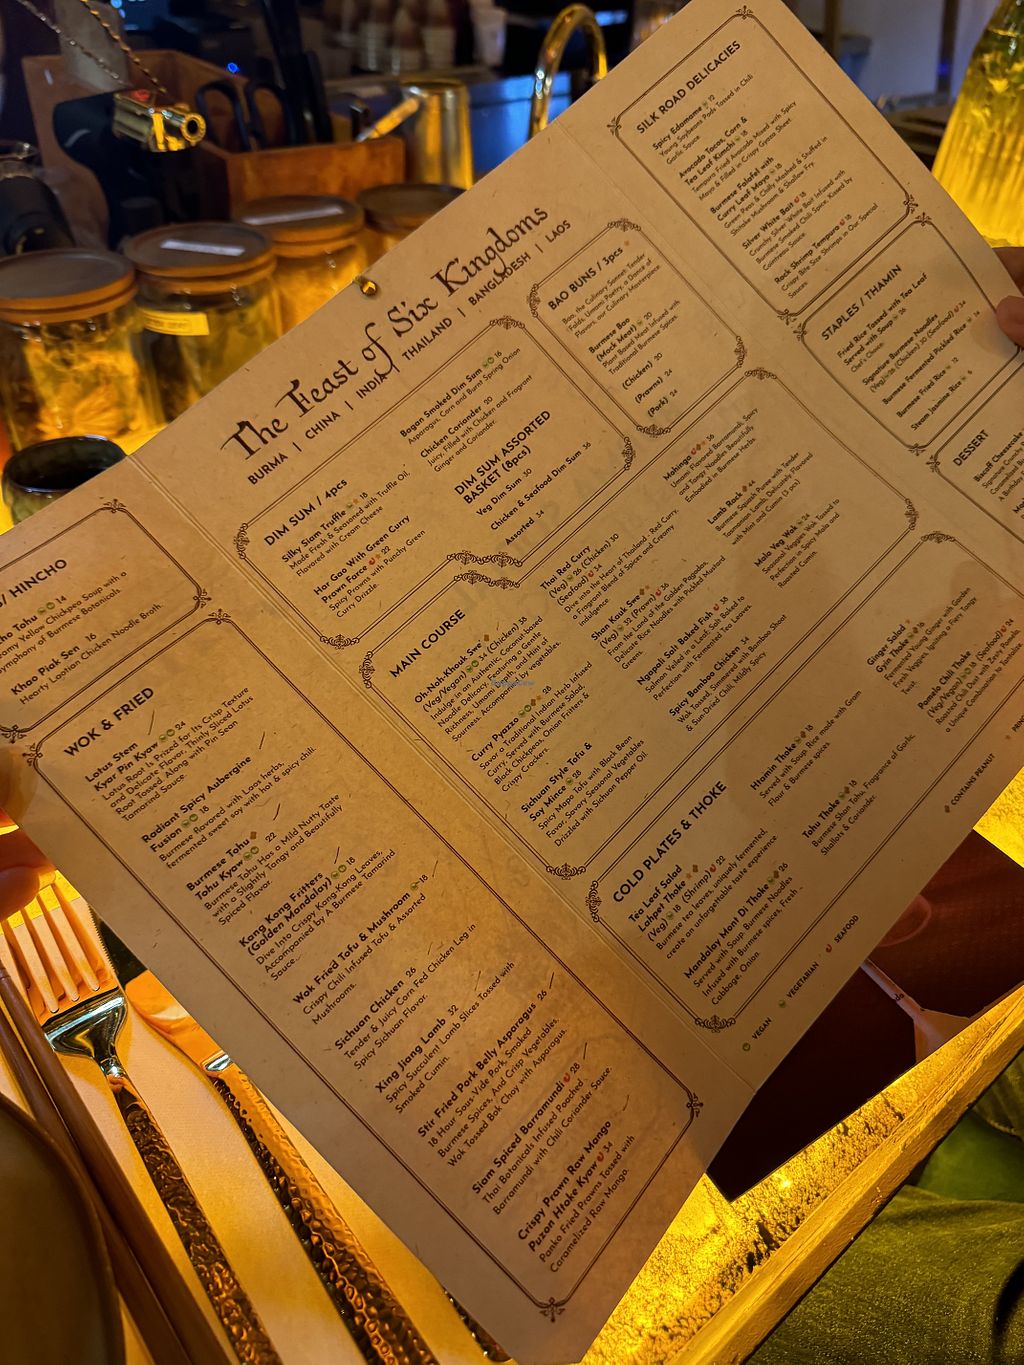 The Feast of Six Kingdoms
BURMA | CHINA | INDIA | THAILAND | BANGLADESH | LAOS
S/ HINCHO
ho Tohu 14
my Yellow Chickpea Soup with a
ymphony of Burmese Botanicals.
Khao Piak Sen 16
Hearty Laotian Chicken Noodle Broth.
WOK & FRIED
Lotus Stem
Kyar Pin Kyaw 24
Lotus Root Is Prized for Its Crisp Texture
and Delicate Flavor, Thinly Sliced Lotus
Root Tossed, Along with Pin Sean
Tamarind Sauce.
Radiant Spicy Aubergine
Fusion 18
Burmese flavored with Laos herbs,
fermented sweet soy with hot & spicy chili.
Burmese Tohu 22
Tohu Kyaw
Burmese Tohu Has a Mild Nutty Taste
with a Slightly Tangy and Beautifully
Spiced Flavor.
Kong Kong Fritters
(Golden Mandalay) 18
Dive Into Crispy Kong-Kong Leaves,
Accompanied by A Burmese Tamarind
Sauce.
Wok Fried Tofu & Mushroom 18
Crispy Chili Infused Tofu & Assorted
Mushrooms.
Sichuan Chicken 26
Tender & Juicy Corn Fed Chicken Leg in
Spicy Sichuan Flavor.
Xing Jiang Lamb 32
Spicy Succulent Lamb Slices Tossed with
Smoked Cumin.
Stir Fried Pork Belly Asparagus 26
18 Hour Sous Vide Pork, Smoked
Burmese Spices, And Crisp Vegetables.
Wok Tossed Bok Choy with Asparagus.
Siam Spiced Barramundi 28
Thai Botanicals Infused Poached
Barramundi with Chili Coriander Sauce.
Crispy Prawn Raw Mango
Puzon Htoke Kyaw 34
Panko Fried Prawns Tossed with
Caramelized Raw Mango.
DIM SUM / 4pcs
Silky Siam Truffle 18
Made Fresh & Seasoned with Truffle Oil,
Flavored with Cream Cheese
Har Gao With Green Curry
Prawn Farce 22
Spicy Prawns with Punchy Green
Curry Drizzle
Bagan Smoked Dim Sum 16
Asparagus, Corn and Burnt Spring Onion
Chicken Coriander 20
Juicy, Filled with Chicken and Fragrant
Ginger and Coriander.
DIM SUM ASSORTED
BASKET (8pcs)
Veg Dim Sum 30
Chicken & Seafood Dim Sum 36
Assorted 34
BAO BUNS / 3pcs
Bao, the Culinary Sonnet, Tender
Folds, Umami Poetry, a Dance of
Flavors, our Culinary Masterpiece.
Burmese Bao
(Mock Meat) 20
Plant Based Meat Infused with
Traditional Burmese Spices.
(Chicken) 20
(Prawns) 24
(Pork) 24
MAIN COURSE
Oh-Noh-Khauk Swe
(Veg/Vegan) 34 (Chicken) 38
Indulge in an Authentic, Coconut-based
Noodle Delicacy, Capturing a Gentle
Richness, Umami Depth and Hint of
Sourness, Accompanied by Vegetables.
Curry Pyazzo 28
Savor a Traditional Indian Herb Infused
Curry, Served with Burmese Salad,
Black Chickpeas, Onion Fritters &
Crispy Crackers.
Sichuan Style Tofu &
Soy Mince 28
Spicy Mapo Tofu with Black Bean
Favor, Savory Seasonal Vegetables
Drizzled with Sichuan Pepper Oil.
Thai Red Curry
(Veg) 26 (Chicken) 30
(Seafood) 34
Dive into the Heart of Thailand - Red Curry,
a Fragrant Blend of Spices and Creamy
Indulgence
Shan Kauk Swe
(Veg) 32 (Prawn) 36
From the Land of the Golden Pagodas,
Delicate Rice Noodles with Pickled Mustard
Greens.
Ngapali Salt Baked Fish 38
Salmon Veiled in a Leaf, Salt Baked to
Perfection, Fermented Tea Leaves.
Spicy Bamboo Chicken 34
Wok Tossed, Simmered with Bamboo Shoot
& Sun-Dried Chili, Mildly Spicy
Makinga 38
Umami Flavored Barramundi, Spicy
and Tangy Noodles Beautifully
Embodied in Burmese Herbs
Lamb Rack 44
Burmese Squash Puree with Tender
Tasmanian Lamb, Deliciously Flavored
with Mint and Cumin (3 pcs)
Mala Veg Wok 24
Seasonal Veggies Wok Tossed to
Perfection in Spicy Mala and
COLD PLATES & THOKE
Tea Leaf Salad
Lahpet Thoke
(Veg) 18 (Shrimp) 22
Burmese tea leaves, uniquely fermented,
create an unforgettable taste experience
Mandalay Mont Di Thoke 26
Served with Soup. Burmese Noodles
Infused with Burmese spices, Fresh
Cabbage, Onion.
Htamin Thoke 18
Served with Soup. Rice made with Gram
Flour & Burmese spices
Tohu Thoke 18
Burmese Shan Tohu, Fragrance of Garlic,
Shallots & Coriander.
Ginger Salad
Gyin Thoke 16
Fermented Young Ginger with Garden
Veggies, Igniting a Fiery Tangy
Twist.
Pomelo Chili Thoke
(Veg/Vegan) 18 (Seafood) 24
Roasted Chili Dust with Zesty Pomelo,
Unique Combination by Tamarind
SILK ROAD DELICACIES
Spicy Edamame 12
Young Soybeans Pods Tossed in Chili
Garlic Sauce
Avocado Tacos, Corn &
Tea Leaf Kimchi 18
Tempura Fried Avocado Mixed with Spicy
Mayo & Filled in Crispy Gyoza Sheet
Burmese Falafel with
Curry Leaf Mayo 18
Green Peas & Chilly Mashed & Stuffed in
Shiitake Mushroom & Shallow Fry.
Silver White Bait 18
Crunchy Silver White Bait Infused with
Burmese Smoked Chili Spice, Kissed by
Sauce
Rock Shrimp Tempura 18
Crispy Bite Size Shrimps in Our Special
Sauces.
STAPLES / THAMIN
Fried Rice Tossed with Tea Leaf
Served with Soup 26
Chef's Choice.
Signature Burmese Noodles
(Veg) 26 (Chicken) 30 (Seafood) 34
Burmese Fermented Pickled Rice 14
Burmese Fried Rice 12
Steam Jasmine Rice 6
DESSERT
Biscoff Cheesecake
VEGAN
VEGETARIAN
SEAFOOD
CONTAINS PEANUT